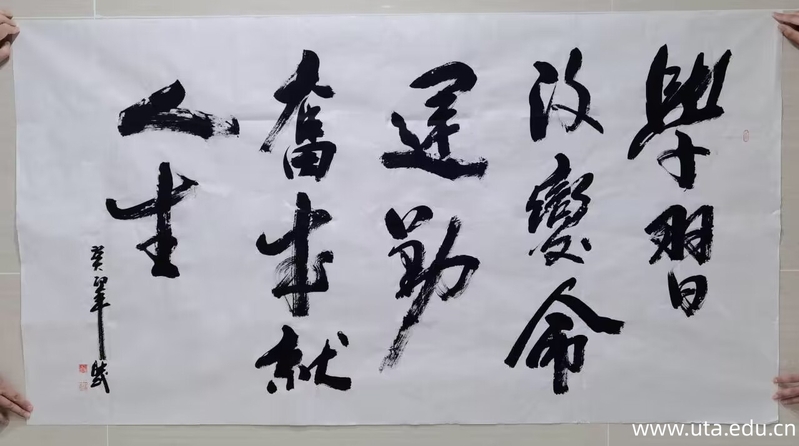 學習
改變命
運勤
奮成就
人生
www.uta.edu.cn